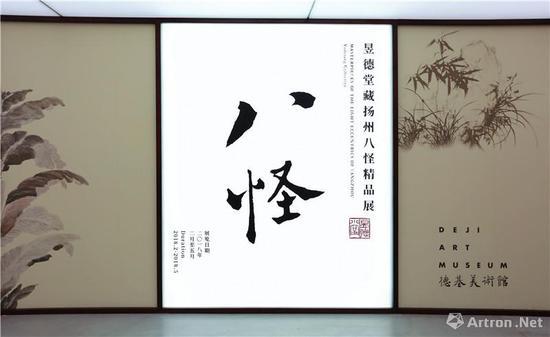 昱德堂藏扬州八怪精品展
MASTERPIECES OF THE EIGHT ECCENTRICS OF YANGZHOU
八怪
展览日期
二〇一八年
二月至五月
Duration
2018.2-2018.5
DEJI
ART
MUSEUM
德基美術館
Artron.Net